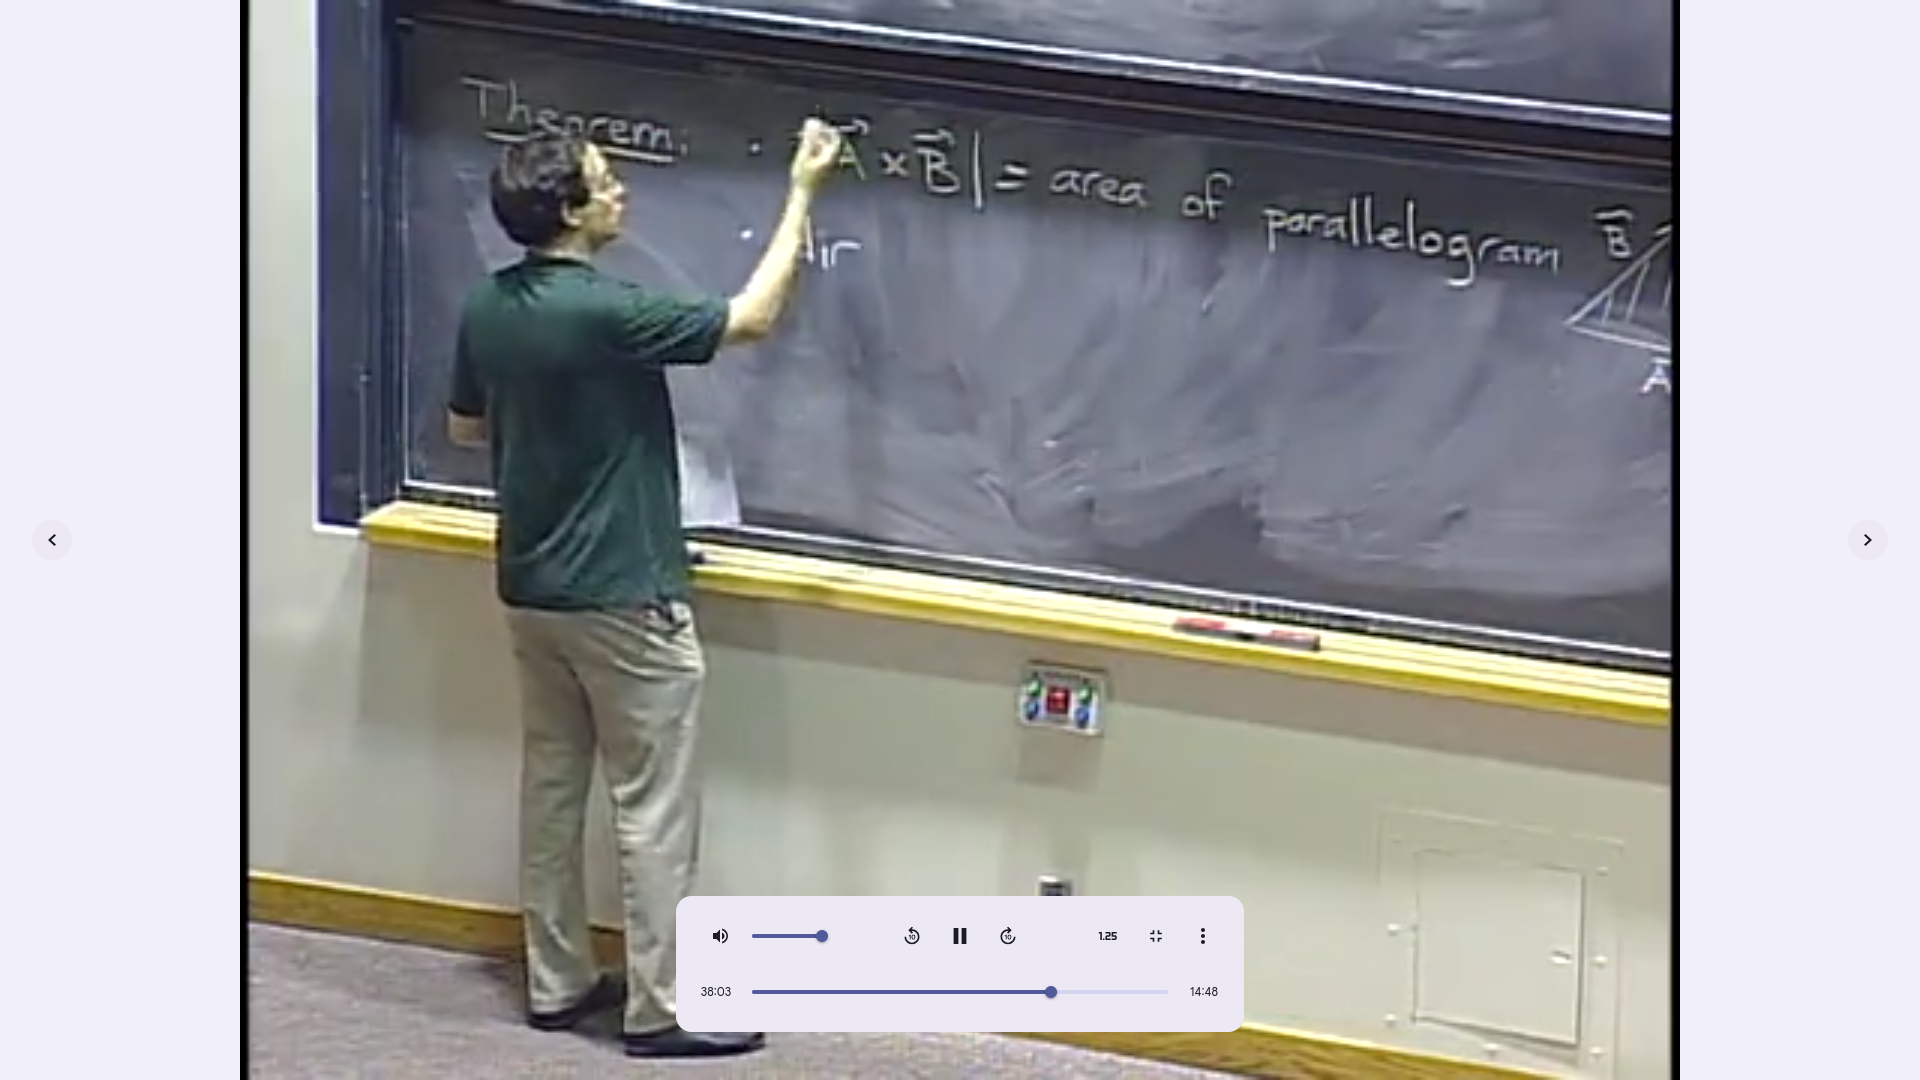 Theorem: • A × B | = area of parallelogram B
• dir
A
1.25
38:03 14:48